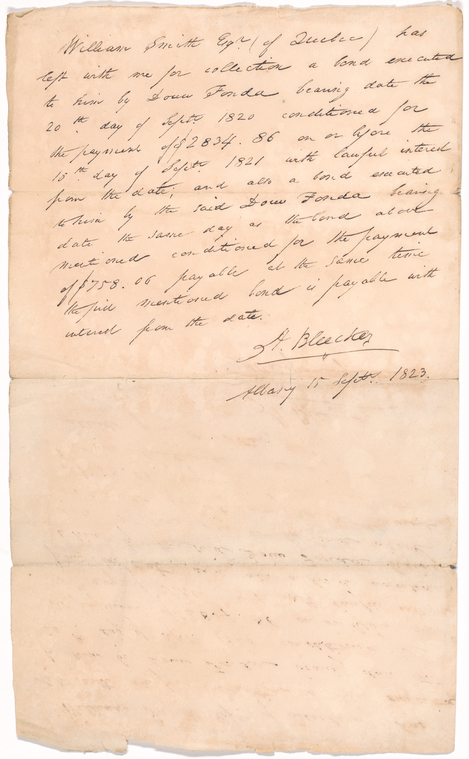 William Smith Esqr. (of Quebec) has
left with me for collection a bond executed
to him by Douw Fonda bearing date the
20th day of Septr. 1820 conditioned for
the payment of $2834.86 on or before the
15th day of Septr. 1821 with lawful interest
from the date; and also a bond executed
to him by the said Douw Fonda bearing
date the same day as the bond above
mentioned conditioned for the payment
of $758.06 payable at the same time
the first mentioned bond is payable with
interest from the date.
H. Bleecker
Albany 15 Septr. 1823.